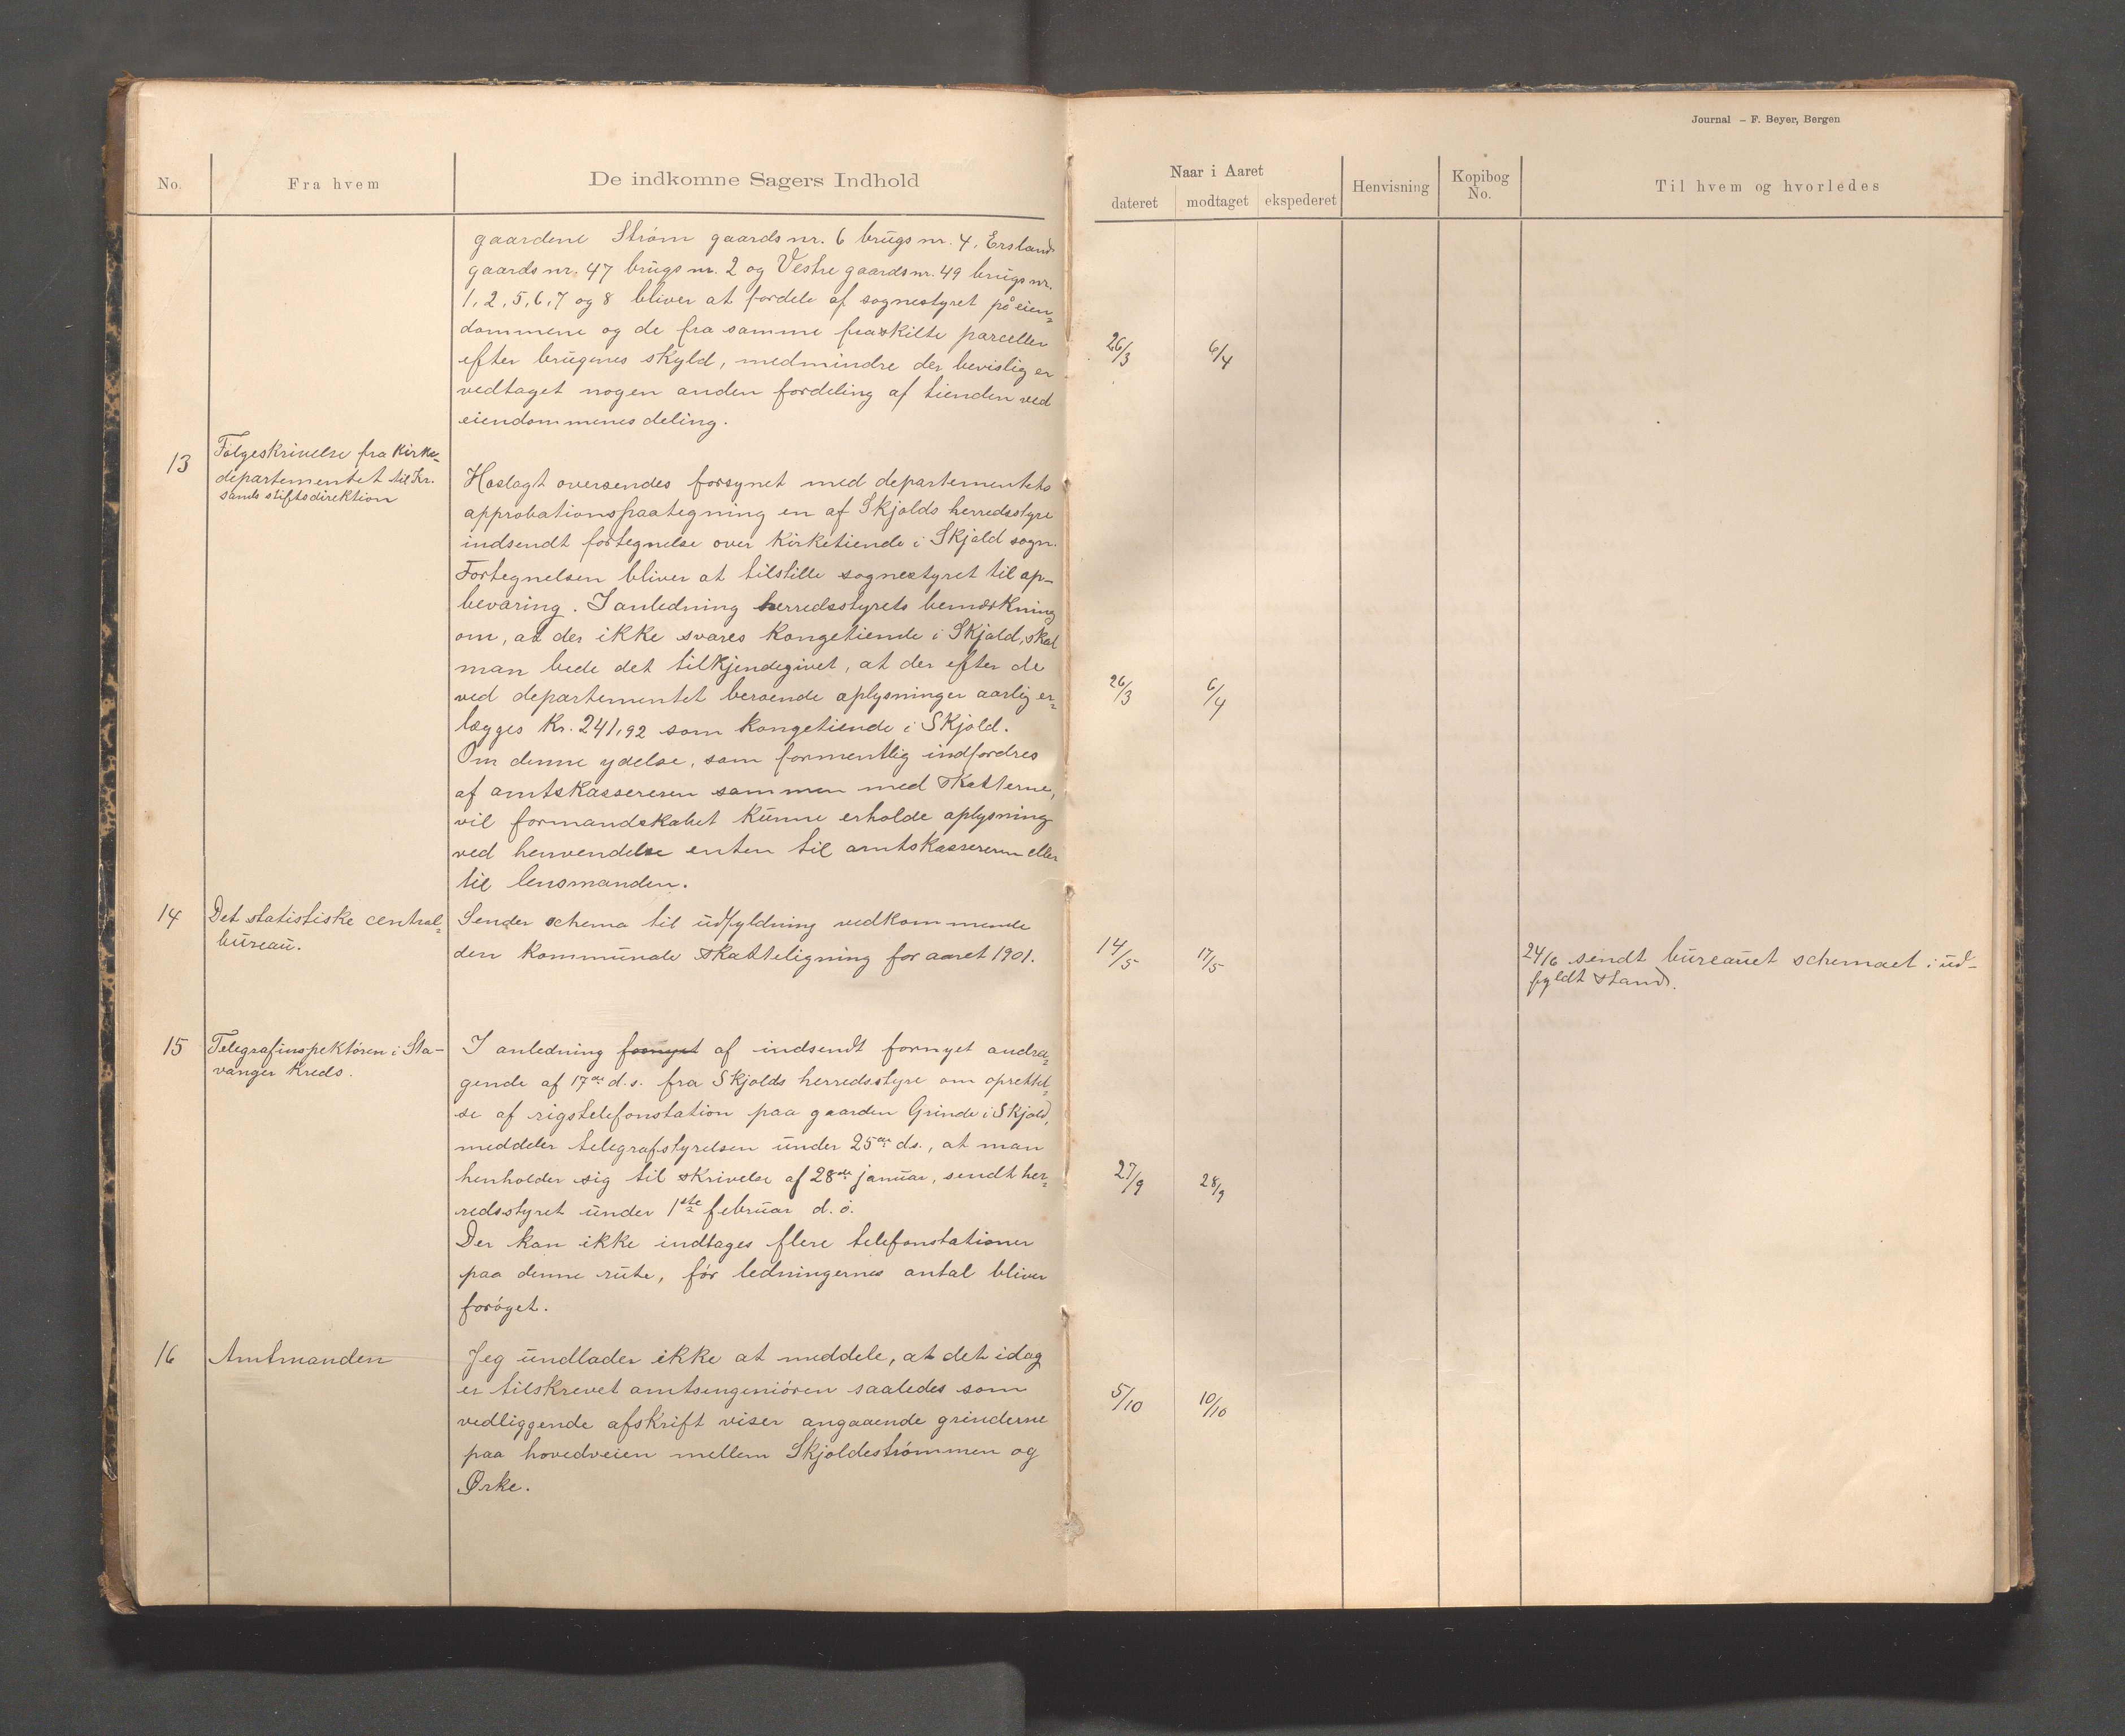 Journal – F. Beyer, Bergen
No. Fra hvem De indkomne Sagers Indhold
Naar i Aaret
dateret modtaget ekspederet Henvisning Kopibog No. Til hvem og hvorledes
gaardene Strøm gaardsnr. 6 brugsnr. 4, Ersland
gaardsnr. 47 brugsnr. 2 og Vestre gaardsnr. 49 brugsnr.
1, 2, 5, 6, 7 og 8 bliver at fordele af sognestyret på eien=
dommene og de fra samme fraskilte parceller
efter brugenes skyld, medmindre der bevislig er
vedtaget nogen anden fordeling af tienden ved
eiendommenes deling.
26/3 6/4
13 Følgeskrivelse fra Kirke-
departementet til Kr.
sands stiftsdirektion
Hoslagt oversendes forsynet med departementets
approbationspaategning en af Skjolds herredsstyre
indsendt fortegnelse over kirketiende i Skjold sogn.
Fortegnelsen bliver at tilstille sognestyret til op-
bevaring. I anledning herredsstyrets bemærkning
om, at der ikke svares kongetiende i Skjold, skal
man bede det tilkjendegivet, at der efter de
ved departementet beroende oplysninger aarlig er=
lægges Kr. 241,92 som kongetiende i Skjold.
Om denne ydelse, som formentlig indfordres
af amtskassereren sammen med skatterne,
vil formandskabet kunne erholde oplysning
ved henvendelse enten til amtskassereren eller
til lensmanden.
26/3 6/4
14 Det statistiske central=
bureau.
Sender schema til udfyldning vedkommende
den kommunale skatteligning for aaret 1901.
14/5 17/5
24/6 sendt bureauet schemaet i ud-
fyldt stand.
15 Telegrafinspektøren i Sta-
vanger Kreds.
I anledning fornyet af indsendt fornyet andra=
gende af 17de d.s. fra Skjolds herredsstyre om oprettel=
se af rigstelefonstation paa gaarden Grinde i Skjold,
meddeler telegrafstyrelsen under 25de ds., at man
henholder sig til skrivelse af 28de januar, sendt her=
redsstyret under 1ste februar d. å.
Der kan ikke indtages flere telefonstationer
paa denne rute, før ledningernes antal bliver
forøget.
27/9 28/9
16 Amtmanden
Jeg undlader ikke at meddele, at det idag
er tilskrevet amtsingeniøren saaledes som
vedliggende afskrift viser angaaende grinderne
paa hovedveien mellem Skjoldestrømmen og
Ørke.
5/10 10/10